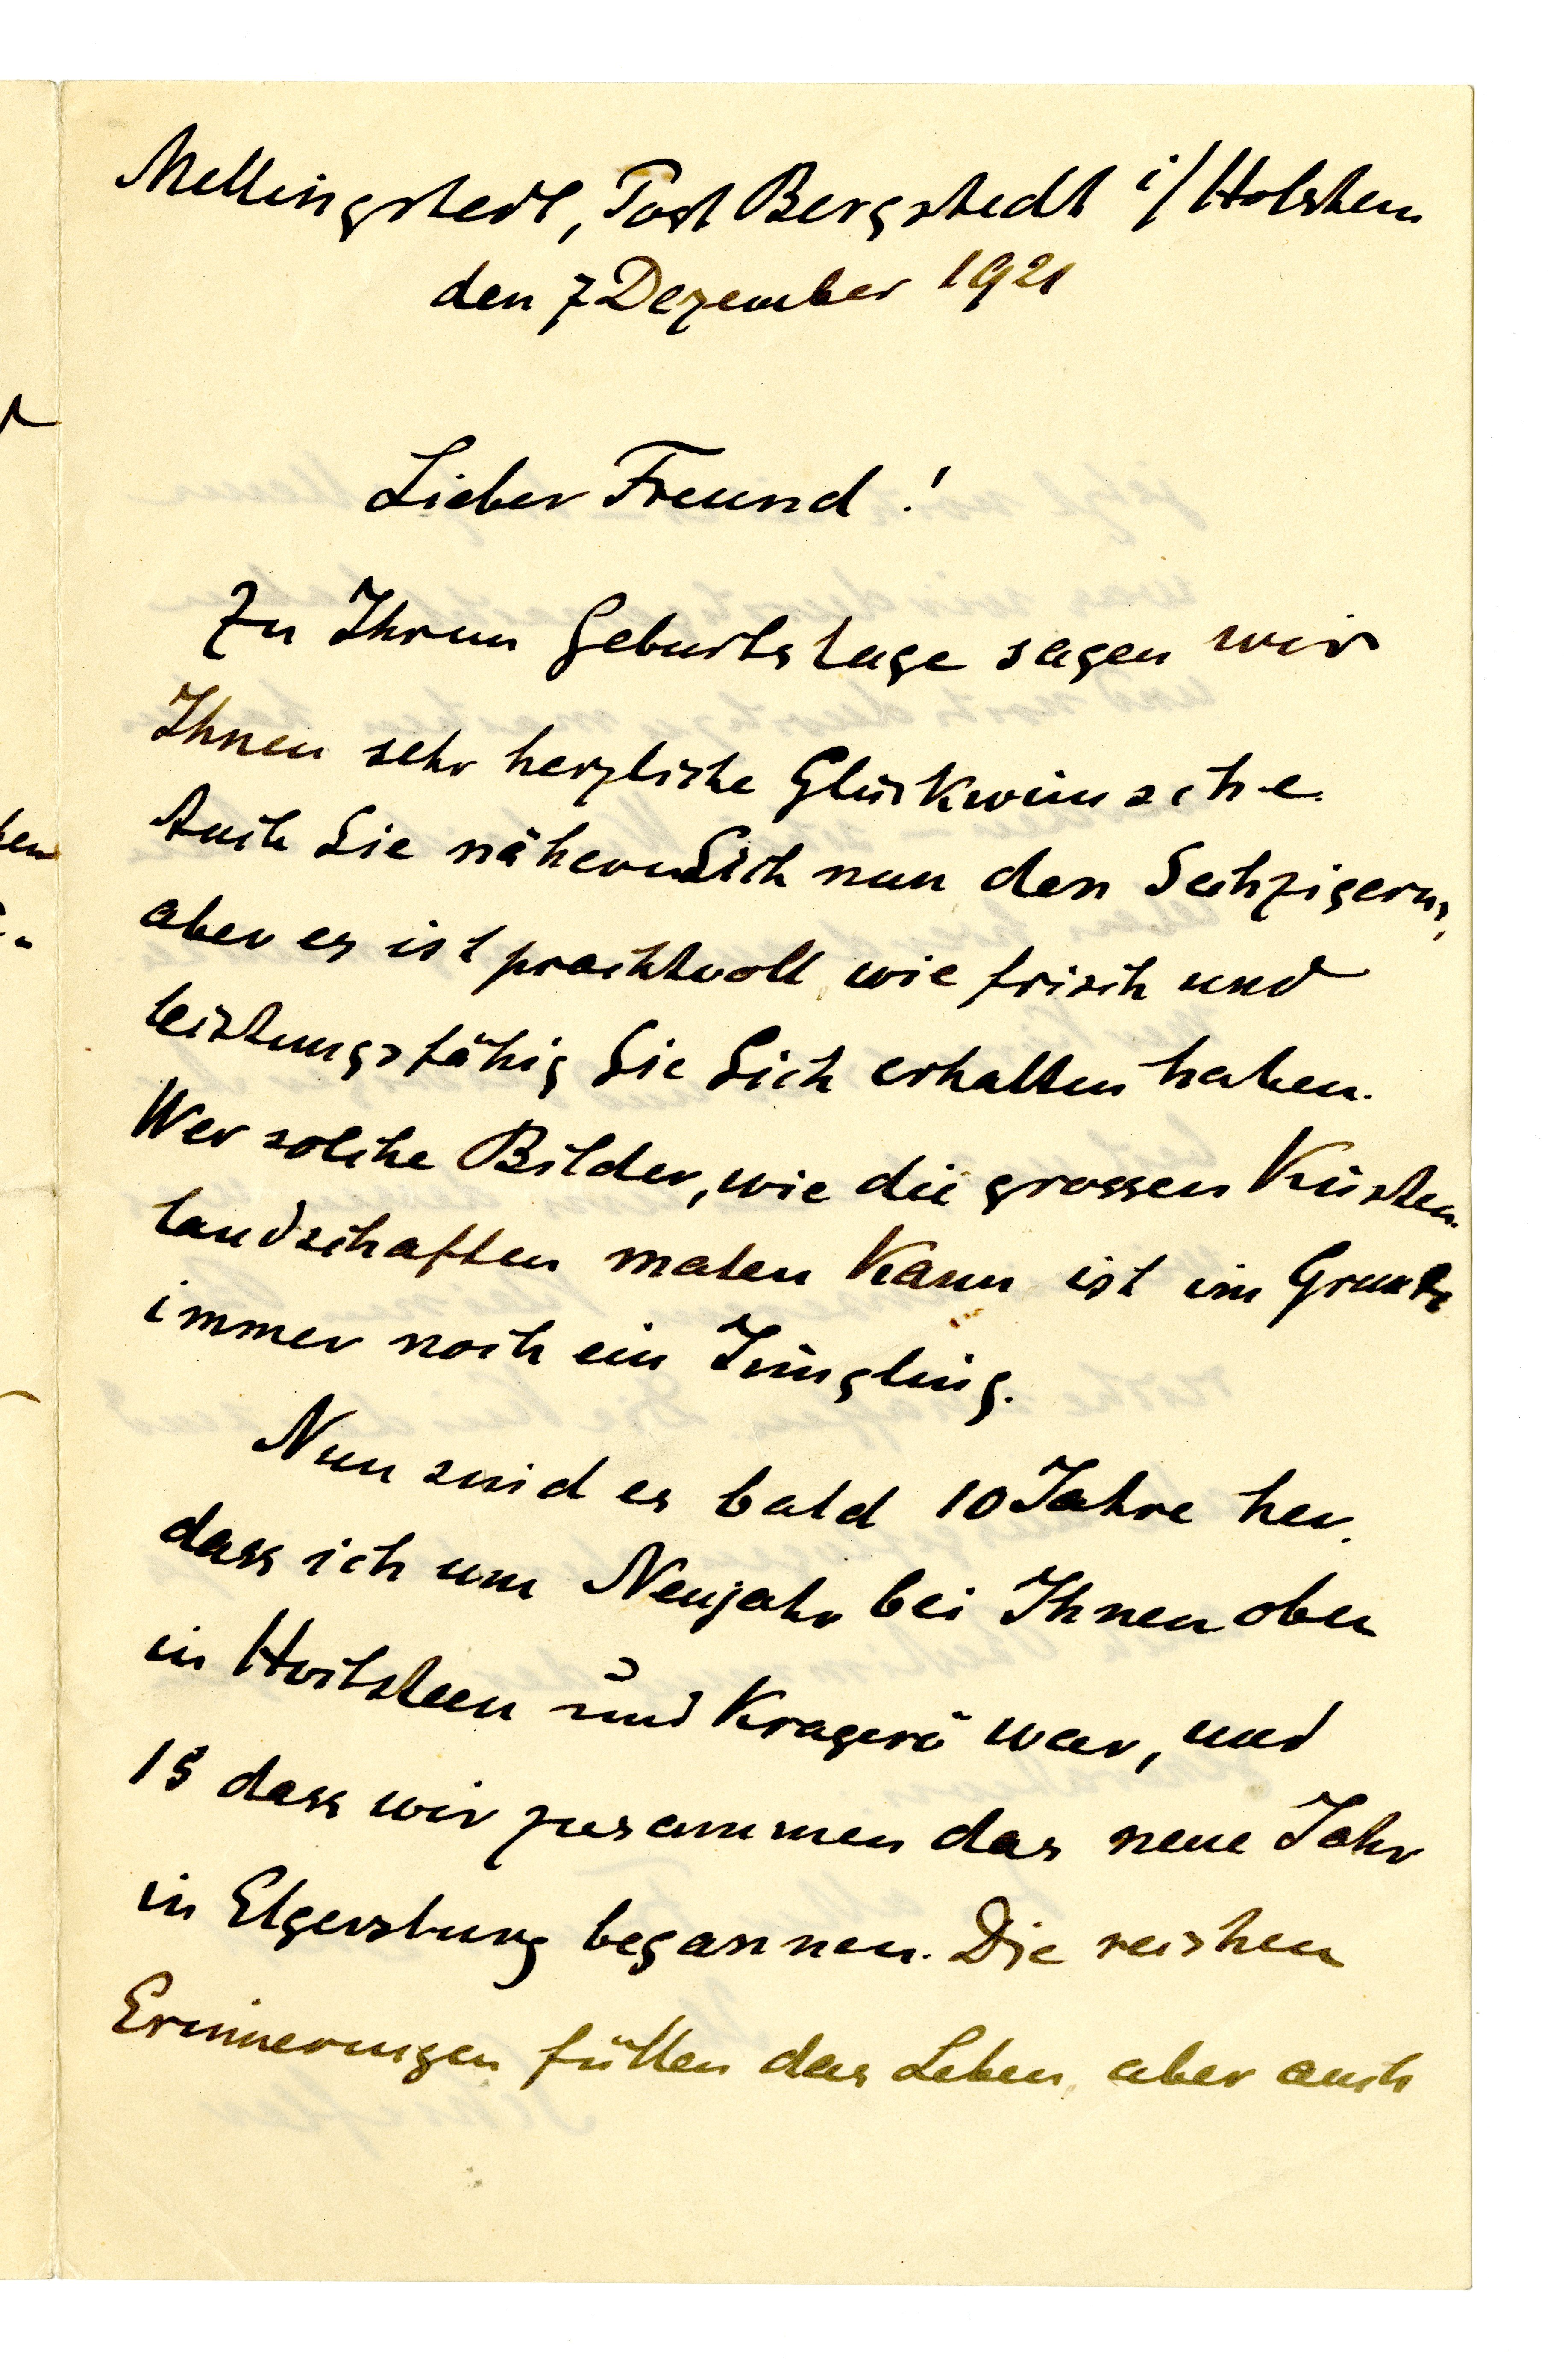 Mellingstedt, Post Bergstedt i/Holstein
den 7 Dezember 1921
Lieber Freund!
Zu Ihrem Geburtstage sagen wir
Ihnen sehr herzliche Glückwünsche.
Auch Sie nähern Sich nun den Sechzigern,
aber es ist prachtvoll wie frisch und
leistungsfähig Sie Sich erhalten haben.
Wer solche Bilder, wie die grossen Küsten
landschaften malen kann ist im Grunde
immer noch ein Jüngling.
Nun sind es bald 10 Jahre her,
dass ich um Neujahr bei Ihnen oben
in Hvitsteen und Kragerö war, und
15 dass wir zusammen das neue Jahr
in Elgersburg begannen. Die reichen
Erinnerungen füllen das Leben, aber auch